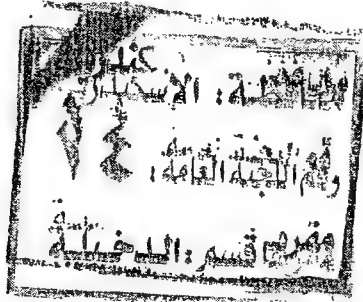 محافظة: الأسكندرية
رقم اللجنة العامة:
ومقرها قسم: الدخيلة